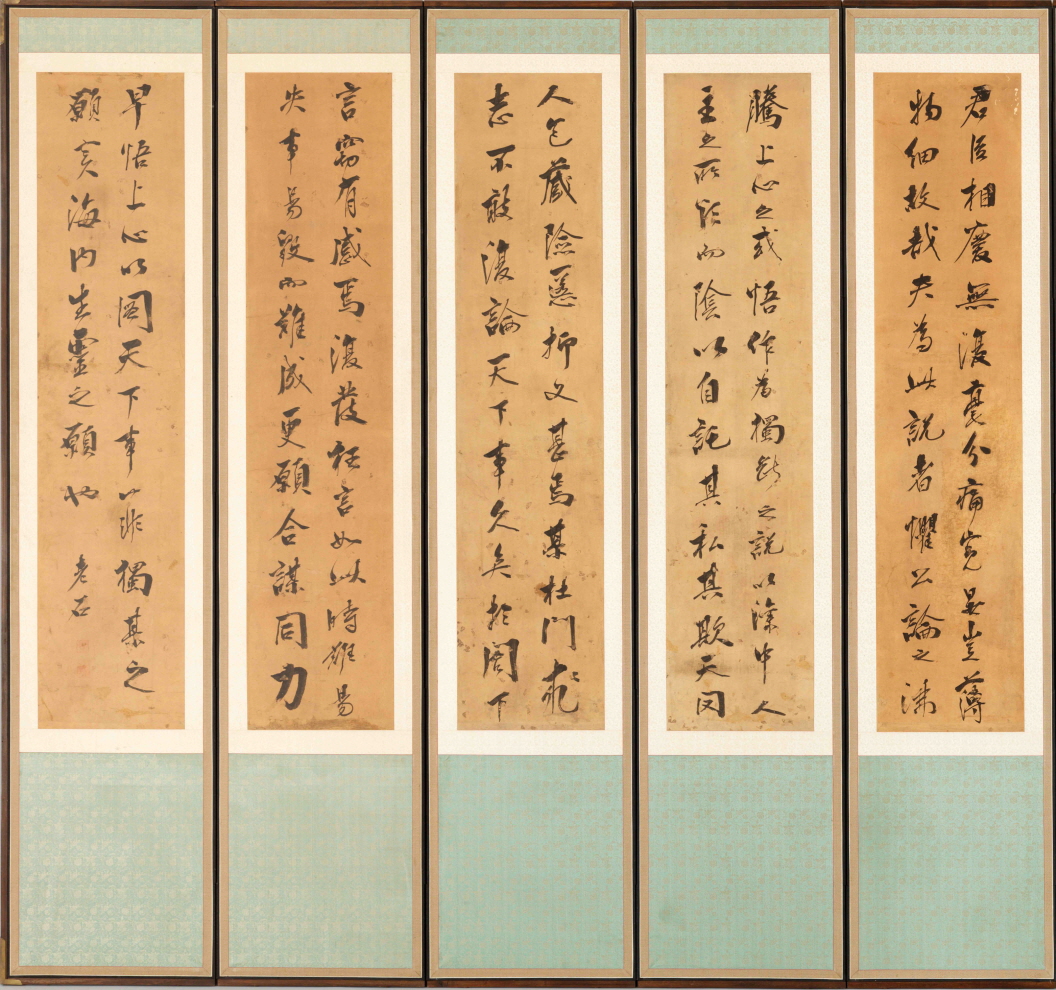 君臣相慶無復毫分痛寃是豈薄
物細故哉夫為此說者懼公論之沸
騰上心之或悟作為獨斷之說以深中人
主之所欲而陰以自託其私其欺天罔
人包藏險慝抑又甚焉某杜門求
志不敢復論天下事久矣於閤下
言竊有感焉復發狂言如此時難易
失事易毀而難成更願合謀同力
早悟上心以圖天下事此非獨某之
願實海內生靈之願也 老石